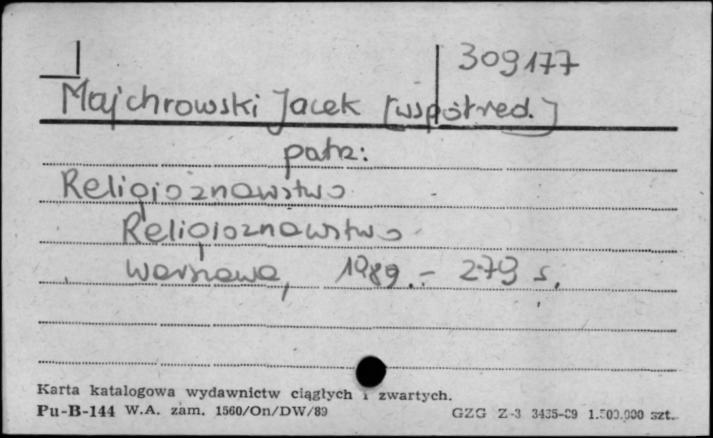 309177
Majchrowski Jacek [współred.]
patrz:
Religioznawstwo
Religioznawstwo
Warszawa, 1989.- 279 s.
Karta katalogowa wydawnictw ciągłych i zwartych.
Pu-B-144 W.A. zam. 1560/On/DW/89 GZG Z-3 3435-89 1.500.000 szt.